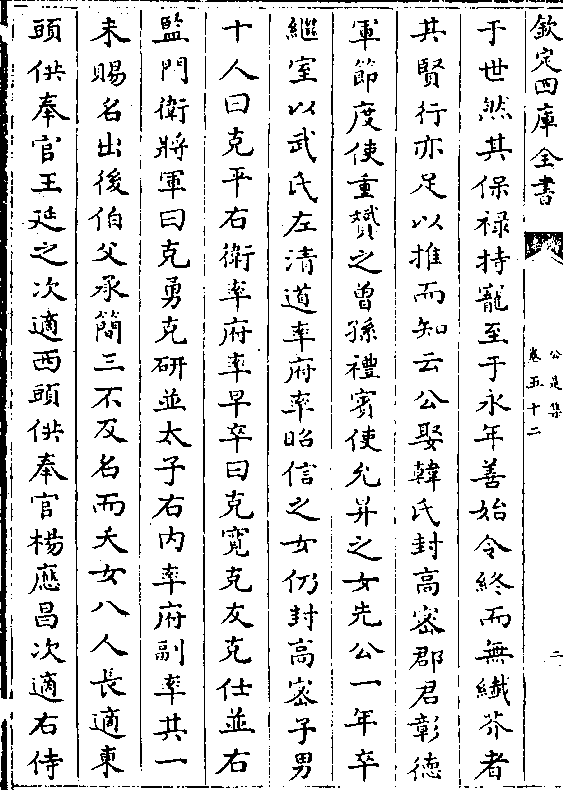 欽定四庫全書
公是集
卷五十二
二
于世然其保禄持寵至于永年善始令終而無纎芥者
其賢行亦足以推而知云公娶韓氏封高宻郡君彰徳
軍節度使重贇之曾孫禮賓使允升之女先公一年卒
繼室以武氏左清道率府率昭信之女仍封高宻子男
十人曰克平右衛率府率早卒曰克寛克友克仕並右
監門衛將軍曰克勇克研並太子右内率府副率其一
未賜名出後伯父承簡三不及名而夭女八人長適東
頭供奉官王延之次適西頭供奉官楊應昌次適右侍